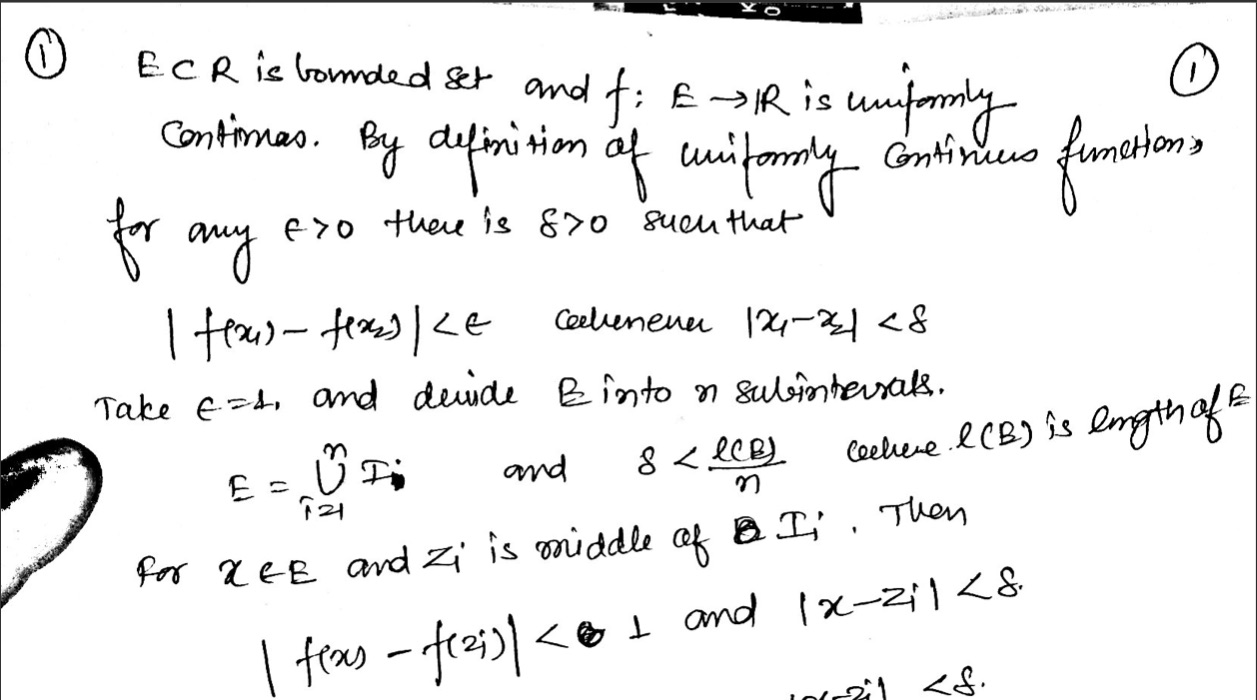 ① E ⊂ R is bounded set and f: E → ℝ is uniformly ①
Continuous. By definition of uniformly Continuous function,
for any ϵ>0 there is δ>0 such that
| f(x₁) − f(x₂) | < ϵ whenever |x₁−x₂| < δ
Take ϵ=1, and devide E into n subintervals.
E = ⋃ᵢ₌₁ⁿ Iᵢ and δ < l(E)/n where l(E) is length of E
for x ∈ E and zᵢ is middle of Iᵢ. Then
| f(x) − f(zᵢ)| < 1 and |x−zᵢ| < δ.
|x−zᵢ| < δ.